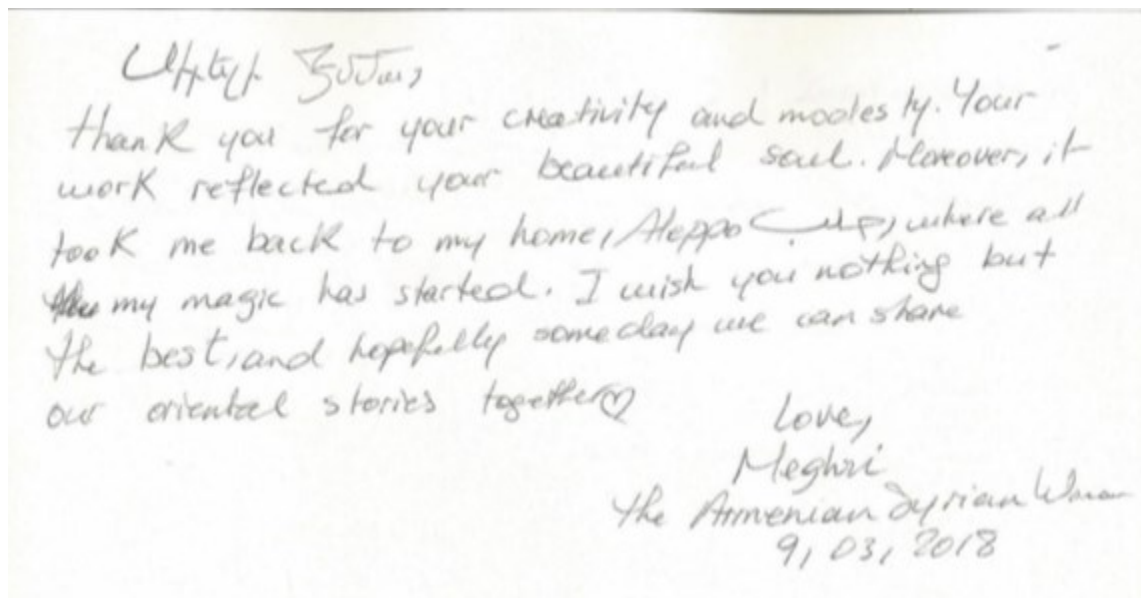 Սիրելի
thank you for your creativity and modesty. Your
work reflected your beautiful soul. Moreover, it
took me back to my home, Aleppo حلب, where all
my magic has started. I wish you nothing but
the best, and hopefully someday we can share
our oriental stories together♡
Love,
Meghri
the Armenian Syrian Woman
9, 03, 2018